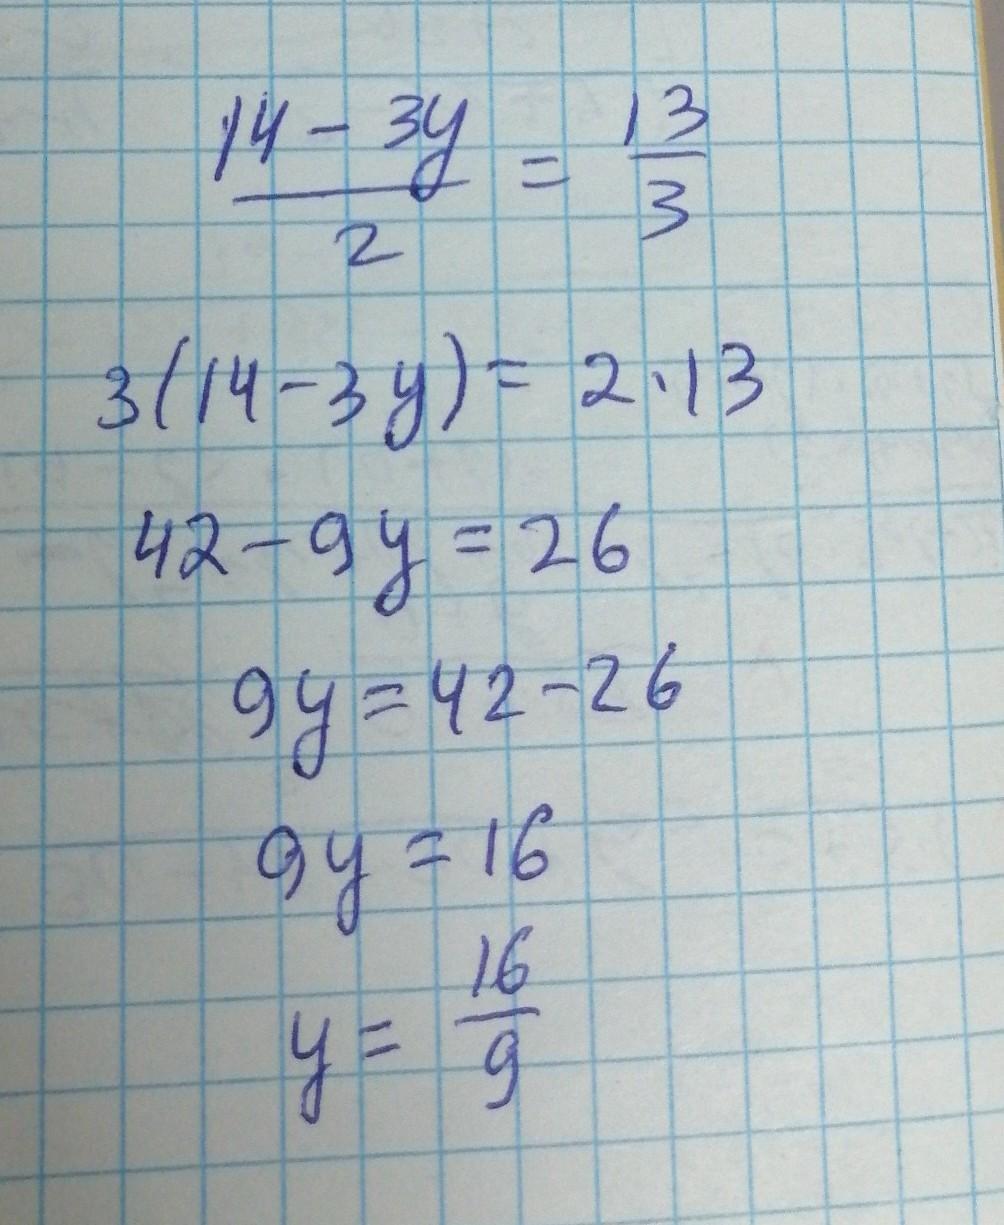 14 - 3y / 2 = 13 / 3
3(14 - 3y) = 2 · 13
42 - 9y = 26
9y = 42 - 26
9y = 16
y = 16 / 9